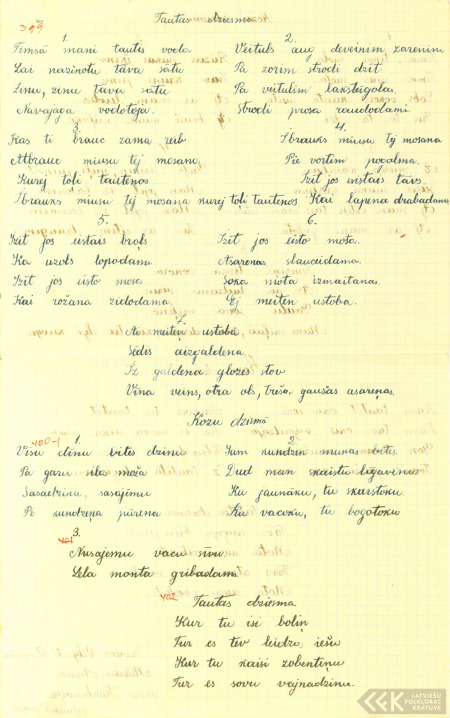 399
Tautas dziesma
1.
Timsā mani tautas veda
Lai nazinotu tāva sātu
Zinu, zinu tāva sātu
Navajaga vodotoja.
2.
Veituls aug deveinim zarenim
Pa zorim strodi dzīt
Pa veitulim laksteigolas.
Strodi prosa raudodami.
3.
Kas ti brauc zama reib
Atbrauc miusu tej mosanu.
Kurej toli tautenos
Ibrauks miusu tej mosana nurej toļi tautenos
4.
Ibrauks miusu tej mosana
Pie vortim pogolma.
Izit jos eistais tāvs
Kai lapena drabadama
5.
Izit jos eistais brols
Ka uzols lopodams.
Izit jos eisto mosa
Kai rožana zidodama.
6.
Izit jos eisto moša.
Asarenas slauceidama.
Soka mota izmaitanas.
Ej meiten ustoba.
7.
As meiteņ ustobā,
Sēdis aizgaldena.
Iz galdena glozes stov
Vina veins, otra ols, treša gaušas asareņas.
Kozu dzismē
400-1
1.
Visu dinu bites dzinu
Pa garu sila maža
Sasadzinu, sasajimu
Pi kundziņa pūrena
2.
Jam kundzen munas bites.
Dud man skaistu ligavinu
Ku jaunāku, tu skaistoku.
Ku vacoku, tu bogotoku
401
3.
Nusajemu vacu
Lela monta gribadams.
402
Tautas dzisma
Kur tu isi bolin
Tur es tev leidza iešu
Kur tu kaisi zobentiņu
Tur es sovu vajnadzinu.
LATVIEŠU
FOLKLORAS
KRĀTUVE